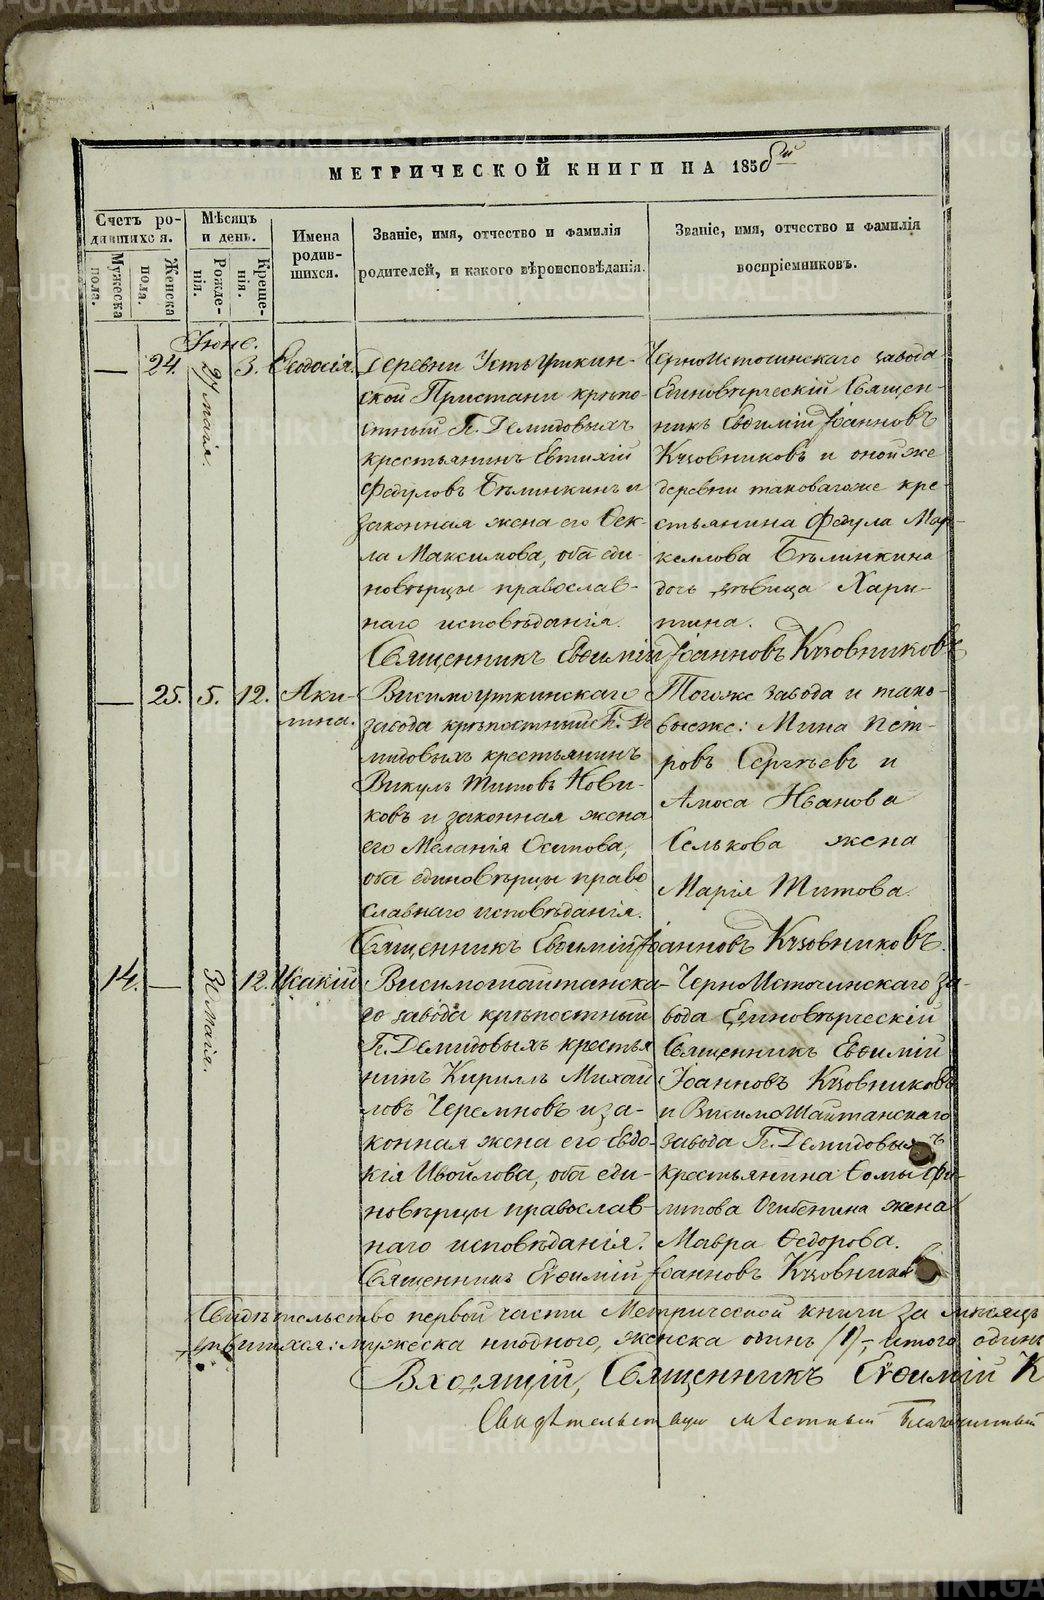 МЕТРИЧЕСКОЙ КНИГИ НА 1858й
Счетъ ро-
дившихся.
Мужеска
пола.
Женска
пола.
Мѣсяцъ
и день.
Рожде-
нія.
Креще-
нія.
Имена
родив-
шихся.
Званіе, имя, отчество и фамилія
родителей, и какого вѣроисповѣданія.
Званіе, имя, отчество и фамилія
воспріемниковъ.
Іюне.
— 24. 27 маія. 3. Ѳеодосія.
Деревни Усть Уткин-
ской Пристани крѣпо-
стный Г. Демидовыхъ
крестьянинъ Евтихій
Федуловъ Бѣлинкинъ и
законная жена его Ѳек-
ла Максимова, оба еди-
новѣрцы православ-
наго исповѣданія.
ЧерноИсточинскаго завода
Единовѣрческій Священ-
никъ Евѳимій Іоанновъ
Кузовниковъ и оной же
деревни таковагоже кре-
стьянина Федула Мар-
келлова Бѣлинкина
дочь дѣвица Хари-
тина.
Священникъ Евѳимій Іоанновъ Кузовниковъ
— 25. 5. 12. Аки-
лина.
Висимоуткинскаго
завода крѣпостный Г. Де
мидовыхъ крестьянинъ
Викулъ Титовъ Нови-
ковъ и законная жена
его Меланія Осипова,
оба единовѣрцы право
славнаго исповѣданія.
Тогоже завода и тако-
выеже: Мина Пет-
ровъ Сергѣевъ и
Амоса Иванова
Селькова жена
Марія Титова.
Священникъ Евѳимій Іоанновъ Кузовниковъ.
14. — 30 Маія. 12. Исакій
Висимошайтанска-
го завода крѣпостный
Г. Демидовыхъ крестья
нинъ Кириллъ Михай
ловъ Черемновъ и за-
конная жена его Евдо-
кія Ивойлова, оба еди-
новѣрцы православ-
наго исповѣданія.
ЧерноИсточинскаго за-
вода Единовѣрческій
Священникъ Евѳимій
Іоанновъ Кузовниковъ
и ВисимоШайтанскаго
завода Г. Демидовыхъ
крестьянина Ѳомы Фи-
липова жена
Мавра Ѳедорова.
Священникъ Евѳимій Іоанновъ Кузовниковъ
Свидѣтельство первой части Метрической книги за мѣсяцъ
мужеска ниодного, женска одинъ /1/, итого одинъ
Входящій, Священникъ Евѳимій К
мѣстный Благочинный